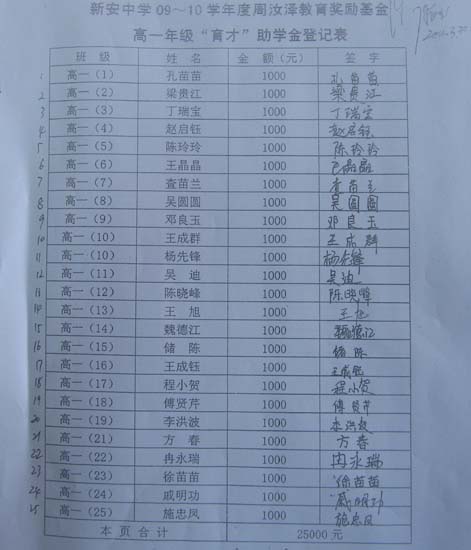 新安中学09～10学年度周汝泽教育奖励基金
高一年级“育才”助学金登记表
班 级 姓 名 金 额（元） 签 字
1 高一（1） 孔苗苗 1000 孔苗苗
2 高一（2） 梁贵江 1000 梁贵江
3 高一（3） 丁瑞宝 1000 丁瑞宝
4 高一（4） 赵启钰 1000 赵启钰
5 高一（5） 陈玲玲 1000 陈玲玲
6 高一（6） 王晶晶 1000 王晶晶
7 高一（7） 査苗兰 1000 查苗兰
8 高一（8） 吴圆圆 1000 吴圆圆
9 高一（9） 邓良玉 1000 邓良玉
10 高一（10） 王成群 1000 王成群
11 高一（10） 杨先锋 1000 杨先锋
12 高一（11） 吴 迪 1000 吴迪
13 高一（12） 陈晓峰 1000 陈晓峰
14 高一（13） 王 旭 1000 王旭
15 高一（14） 魏德江 1000 魏德江
16 高一（15） 储 陈 1000 储陈
17 高一（16） 王成钰 1000 王成钰
18 高一（17） 程小贺 1000 程小贺
19 高一（18） 傅贤芹 1000 傅贤芹
20 高一（19） 李洪波 1000 李洪波
21 高一（21） 方 春 1000 方春
22 高一（22） 冉永瑞 1000 冉永瑞
23 高一（23） 徐苗苗 1000 徐苗苗
24 高一（24） 戚明功 1000 戚明功
25 高一（25） 施忠凤 1000 施忠凤
本 页 合 计 25000 元